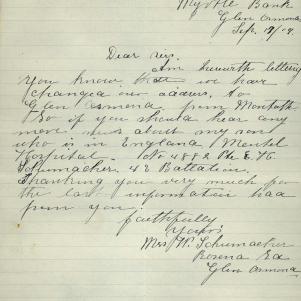 Myrtle Bank
Glen Osmond
Sep. 12/17.
Dear sir,
Am herewith letting
You know that we have
changed our address. to
Glen Osmond from Monteith
So if you should hear any
more news about my son
who is in England Mentel
Hospital. No 4882 Pte E. H.
Schumacher. 48 Battalion.
Thanking you very much for
the last information had
from you
faithfully
Yours
Mrs W. Schumacher
Rosena
Glen Osmond